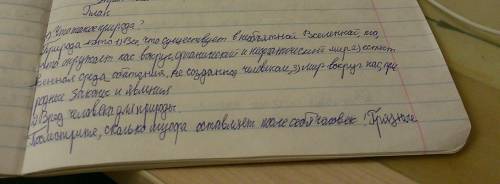 План
1) Что такое природа?
Природа - это 1) Все, что существует в необъятной Вселенной, то,
что окружает нас вокруг, органический и неорганический мир 2) естест
венная среда обитания, не созданная человеком, 3) мир вокруг нас, при
родные законы и явления
2) Вред человека для природы.
Посмотрите, сколько вреда оставляет после себя человек! Грязные